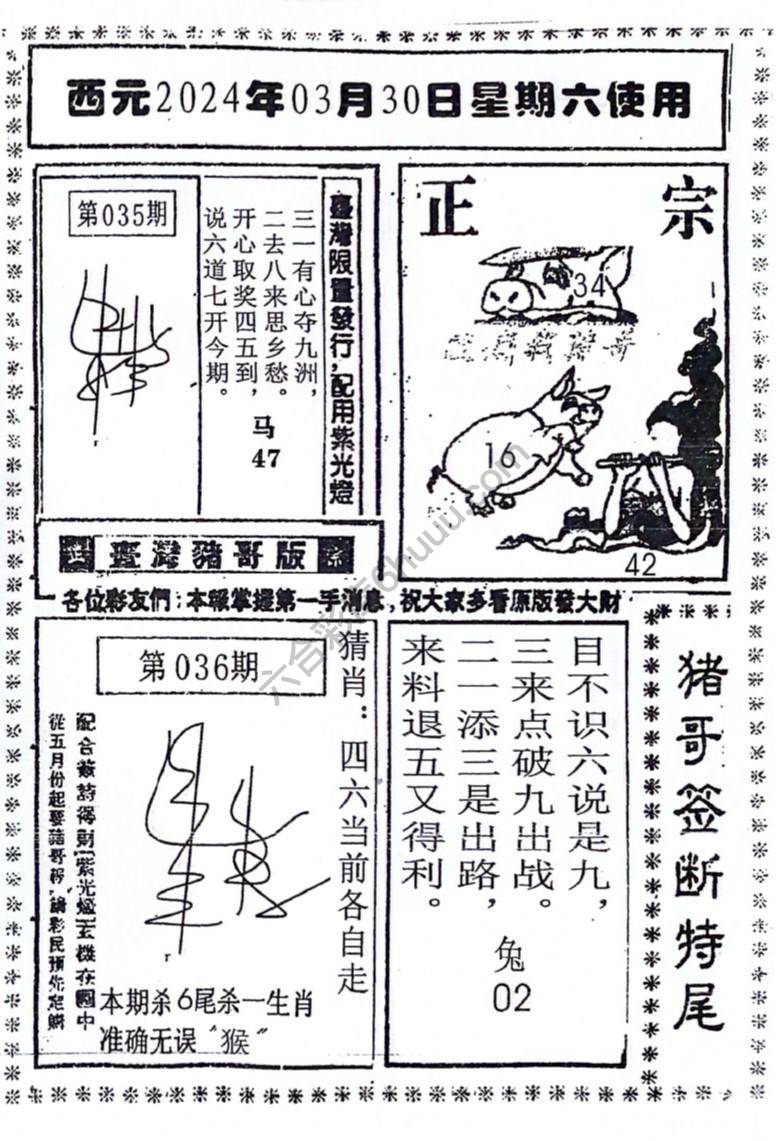 西元2024年03月30日星期六使用
第035期
三一有心夺九洲，
二去八来思乡愁。
开心取奖四五到，
说六道七开今期。
马
47
臺灣限量發行，配用紫光燈
臺灣豬哥版
正宗
34
16
42
各位彩友們：本報掌握第一手消息，祝大家多看原版發大財
第036期
猜肖：四六当前各自走
配合簽詩得財［紫光燈］玄機在圖中
從五月份起
本期杀6尾杀一生肖
准确无误“猴”
目不识六说是九，
三来点破九出战。
二一添三是出路，
来料退五又得利。
兔
02
猪哥签断特尾
六合彩
6huuu.com